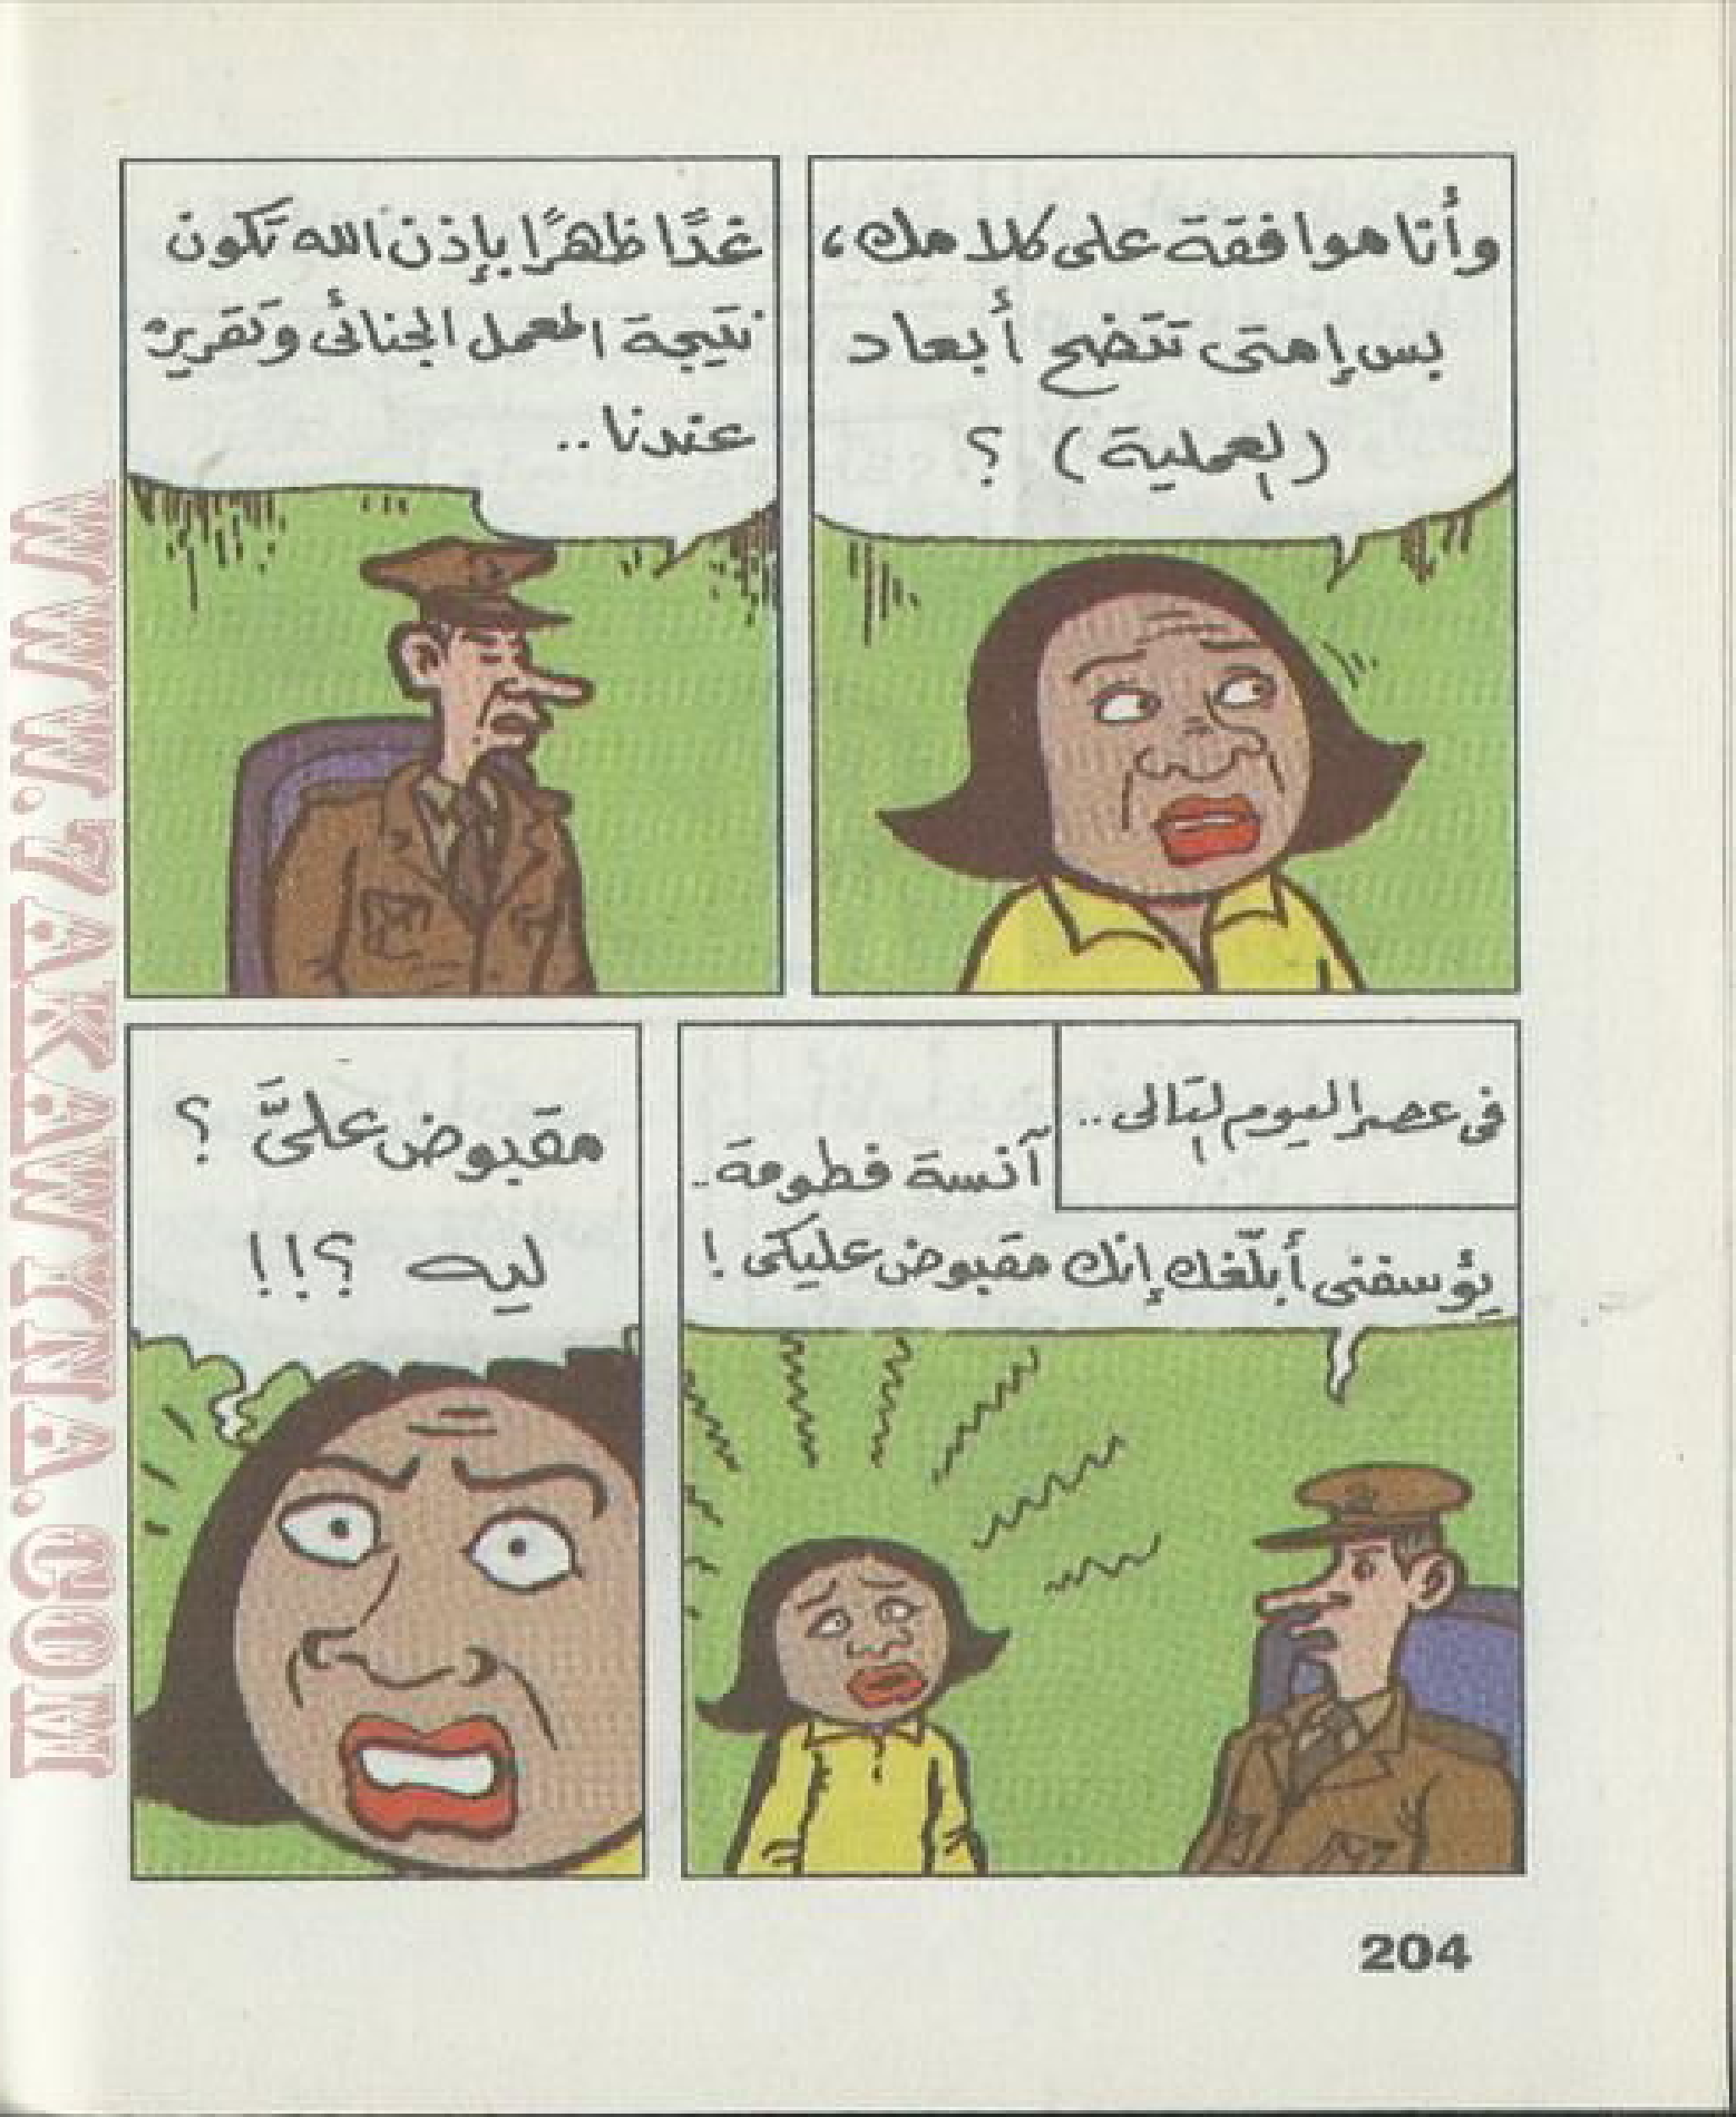 وأنا موافقة على كلامك،
بس إمتى تتضح أبعاد
(العملية) ؟
غدًا ظهرًا بإذن الله تكون
نتيجة المعمل الجنائى وتقريره
عندنا ..
فى عصر اليوم التالى ..
آنسة فطومة ..
يؤسفنى أبلّغك إنك مقبوض عليكى !
مقبوض علىَّ ؟
ليه ؟!!
204
WWW.ZAKAWKNA.COM